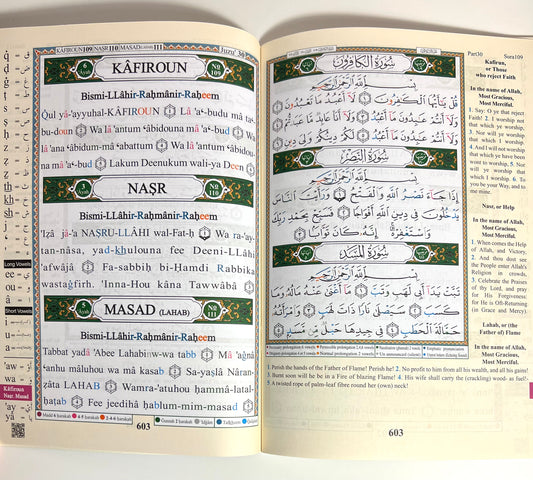 KÂFIROUN 109 NAṢR 110 MASAD (LAHAB) 111
Juzu' 30
6
Ayah
KÂFIROUN
No
109
Bismi-LLâhir-Raḥmânir-Raḥeem
Qul yâ-'ayyuhal-KÂFIROUN 1 Lâ 'a'-budu mâ ta'-
bu-doun 2 Wa lâ 'antum 'âbidouna mâ 'a'-bud 3 Wa
lâ 'ana 'âbidum-mâ 'abattum 4 Wa lâ 'antum 'âbidou-
na mâ 'a'-bud 5 Lakum Deenukum wali-ya Deen 6
3
Ayah
NAṢR
No
110
Bismi-LLâhir-Raḥmânir-Raḥeem
'Iẓâ jâ-'a NAṢRU-LLÂHI wal-Fat-ḥ 1 Wa ra-'ay-
tan-nâsa, yad-khulouna fee Deeni-LLÂHI
'afwâjâ 2 Fa-sabbiḥ bi-Ḥamdi Rabbika
wastagfirh. 'Inna-Hou kâna Tawwâbâ 3
5
Ayah
MASAD (LAHAB)
No
111
Bismi-LLâhir-Raḥmânir-Raḥeem
Tabbat yadâ 'Abee Lahabinw-wa tabb 1 Mâ 'agnâ
'anhu mâluhou wa mâ kasab 2 Sa-yaṣlâ Nâran-
ẓâta LAHAB 3 Wamra-'atuhou ḥammâ-latal-
ḥaṭab 4 Fee jeedihâ ḥablum-mim-masad 5
603
Long Vowels
ee
ou
â
Short Vowels
i
u
a
wa
Kâfiroun
Naṣr Masad
'ay
ya
سُورَةُ الْكَافِرُونَ
بِسْمِ اللَّهِ الرَّحْمَٰنِ الرَّحِيمِ
قُلْ يَٰٓأَيُّهَا ٱلْكَٰفِرُونَ ١ لَآ أَعْبُدُ مَا تَعْبُدُونَ ٢
وَلَآ أَنتُمْ عَٰبِدُونَ مَآ أَعْبُدُ ٣ وَلَآ أَنَا۠ عَابِدٌ مَّا عَبَدتُّمْ ٤
وَلَآ أَنتُمْ عَٰبِدُونَ مَآ أَعْبُدُ ٥ لَكُمْ دِينُكُمْ وَلِىَ دِينِ ٦
سُورَةُ النَّصْرِ
بِسْمِ اللَّهِ الرَّحْمَٰنِ الرَّحِيمِ
إِذَا جَآءَ نَصْرُ ٱللَّهِ وَٱلْفَتْحُ ١ وَرَأَيْتَ ٱلنَّاسَ
يَدْخُلُونَ فِى دِينِ ٱللَّهِ أَفْوَاجًا ٢ فَسَبِّحْ بِحَمْدِ رَبِّكَ
وَٱسْتَغْفِرْهُ إِنَّهُۥ كَانَ تَوَّابًۢا ٣
سُورَةُ الْمَسَدِ
بِسْمِ اللَّهِ الرَّحْمَٰنِ الرَّحِيمِ
تَبَّتْ يَدَآ أَبِى لَهَبٍ وَتَبَّ ١ مَآ أَغْنَىٰ عَنْهُ مَالُهُۥ وَمَا
كَسَبَ ٢ سَيَصْلَىٰ نَارًا ذَاتَ لَهَبٍ ٣ وَٱمْرَأَتُهُۥ
حَمَّالَةَ ٱلْحَطَبِ ٤ فِى جِيدِهَا حَبْلٌ مِّن مَّسَدٍۭ ٥
Part30 Sora109
Kafirun,
or Those
who reject Faith
In the name of Allah,
Most Gracious,
Most Merciful.
1. Say: O ye that reject
Faith! 2. I worship not
that which ye worship,
3. Nor will ye worship
that which I worship.
4. And I will not worship
that which ye have been
wont to worship, 5. Nor
will ye worship that
which I worship. 6. To
you be your Way, and to
me mine.
Nasr, or Help
In the name of Allah,
Most Gracious,
Most Merciful.
1. When comes the Help
of Allah, and Victory,
2. And thou dost see
the People enter Allah's
Religion in crowds,
3. Celebrate the Praises
of thy Lord, and pray
for His Forgiveness:
For He is Oft-Returning
(in Grace and Mercy).
Lahab, or (the
Father of) Flame
In the name of Allah,
Most Gracious,
Most Merciful.
1. Perish the hands of the Father of Flame! Perish he! 2. No profit to him from all his wealth, and all his gains!
3. Burnt soon will he be in a Fire of blazing Flame! 4. His wife shall carry the (crackling) wood- as fuel!-
5. A twisted rope of palm-leaf fibre round her (own) neck!
603